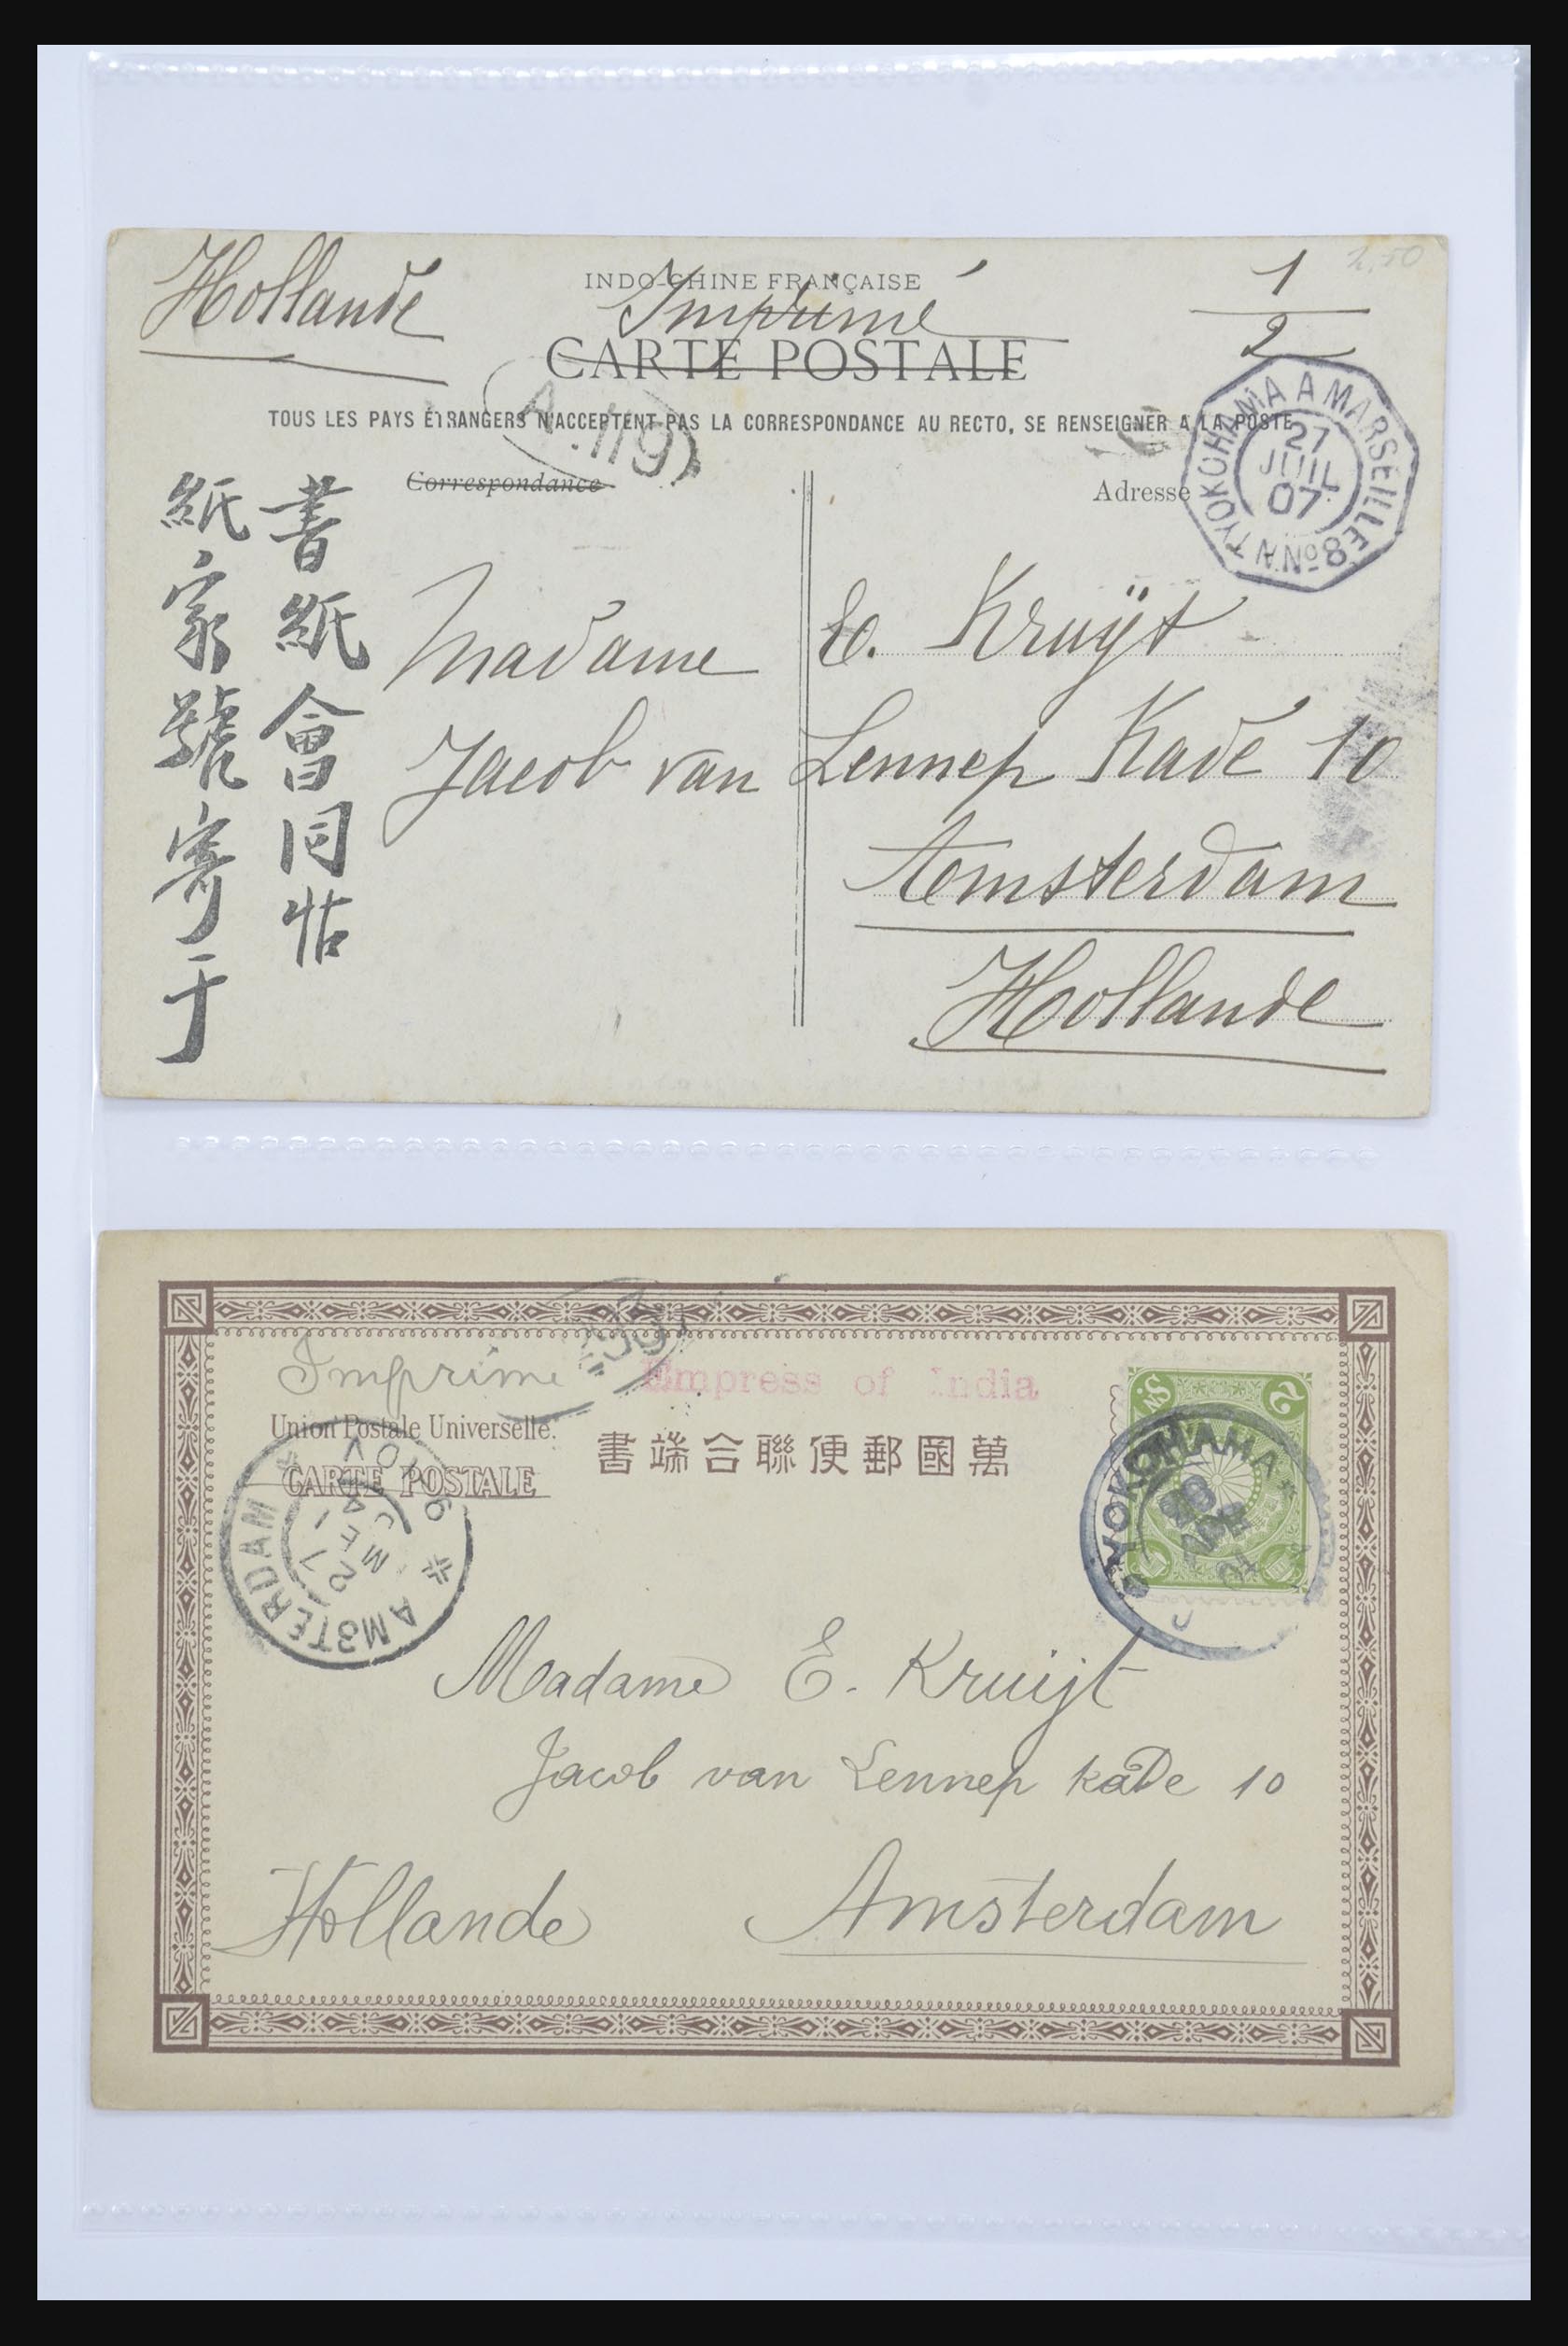 Hollande
INDO-CHINE FRANÇAISE
Imprimé
CARTE POSTALE
1
2
2,50
TOUS LES PAYS ÉTRANGERS N'ACCEPTENT PAS LA CORRESPONDANCE AU RECTO, SE RENSEIGNER A LA POSTE
A.119
YOKOHAMA A MARSEILLE
27
JUIL
07
L N No8
Correspondance
Adresse
書紙會同帖
紙家號寄于
Madame E. Kruÿt
Jacob van Lennep Kade 10
Amsterdam
Hollande
Imprimé
Empress of India
Union Postale Universelle.
CARTE POSTALE
萬國郵便聯合端書
2
SN
YOKOHAMA
AMSTERDAM
Madame E. Kruijt
Jacob van Lennep kade 10
Hollande Amsterdam